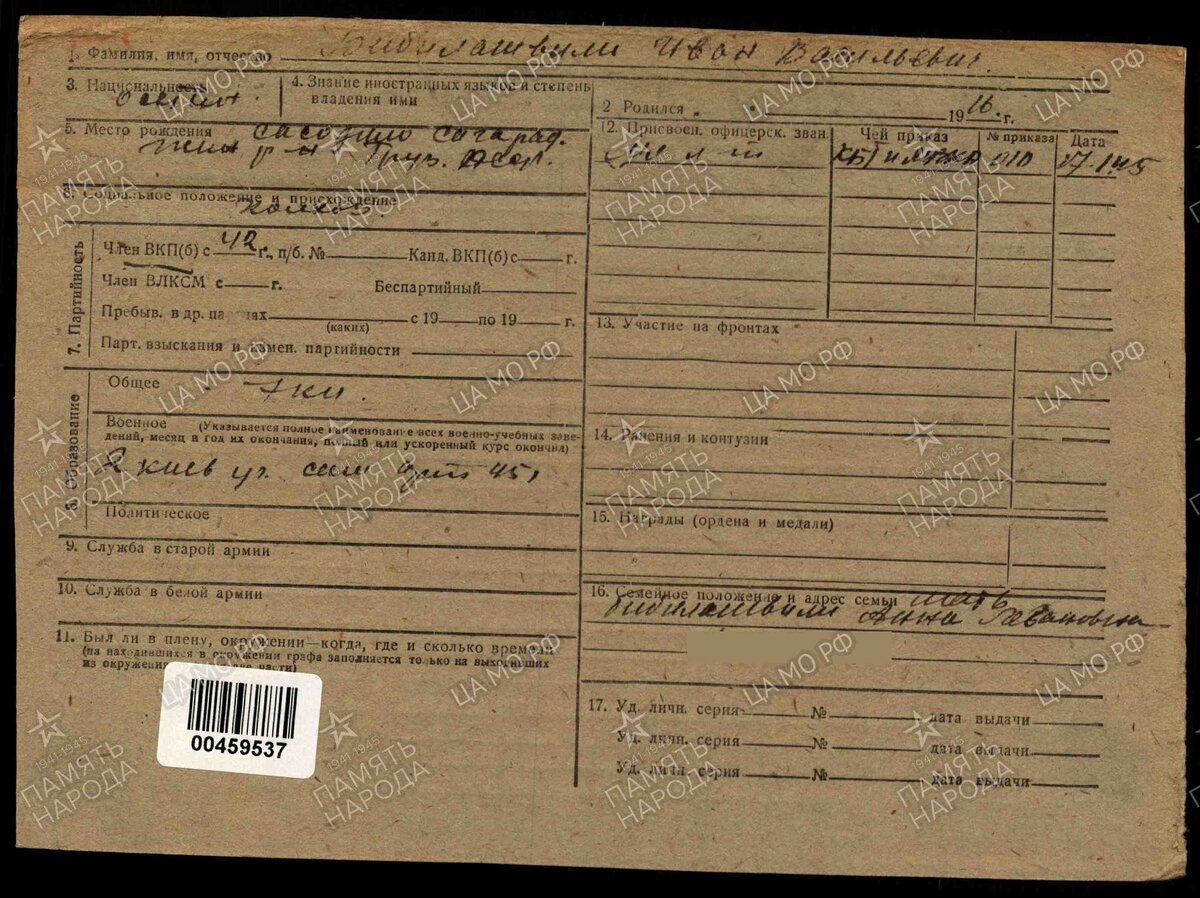 1. Фамилия, имя, отчество Бибилашвили Иван Васильевич.
3. Национальность осетин.
4. Знание иностранных языков и степень
владения ими
2 Родился 1916 г.
5. Место рождения
р-н Груз.
6. Социальное положение и присхождение
7. Партийность
Член ВКП(б) с 42 г., п/б. № Канд. ВКП(б) с г.
Член ВЛКСМ с г. Беспартийный
Пребыв. в др. па х (каких) с 19 по 19 г.
Парт. взыскания и камен. партийности
8. Образование
Общее 7 кл.
Военное (Указывается полное наименование всех военно-учебных заве-
дений, месяц и год их окончания, полный или ускоренный курс окончил)
2 киев уч. 45
Политическое
9. Служба в старой армии
10. Служба в белой армии
11. Был ли в плену, окружении—когда, где и сколько времени
(на находившихся в окружении графа заполняется только на выходивших
из окружения части)
00459537
12. Присвоен. офицерск. зван. Чей приказ № приказа Дата
мл л-т 010
13. Участие на фронтах
14. Ранения и контузии
15. Награды (ордена и медали)
16. Семейное положение и адрес семьи мать
Бибилашвили Анна
17. Уд. личн. серия № дата выдачи
Уд. личн. серия № дата выдачи
Уд. личн. серия № дата выдачи
ЦА МО РФ
1941-1945
ПАМЯТЬ
НАРОДА